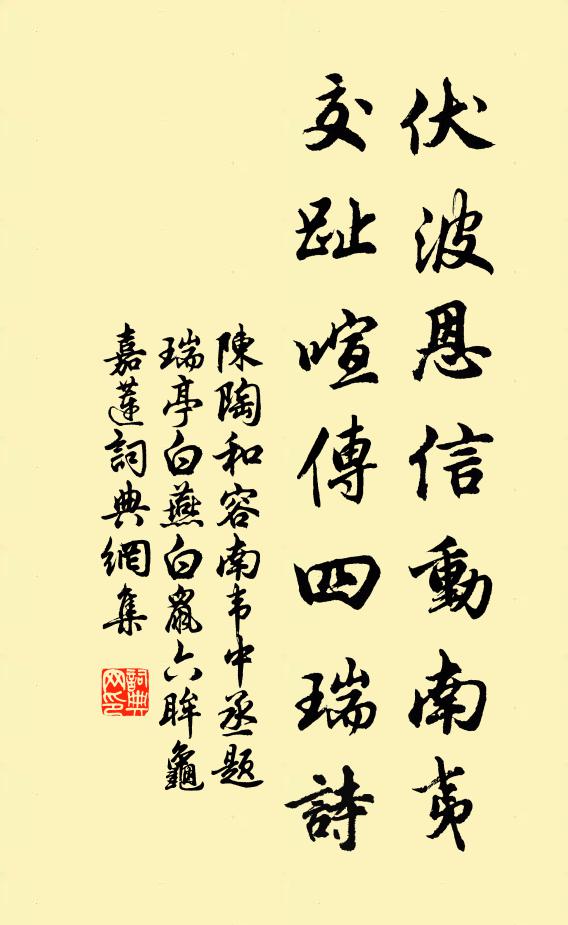 伏波恩信動南夷
交趾喧傳四瑞詩
陳陶和容南韦中丞題
瑞亭白燕白鼠六眸龜
嘉蓮詞典網集
詞典
网印